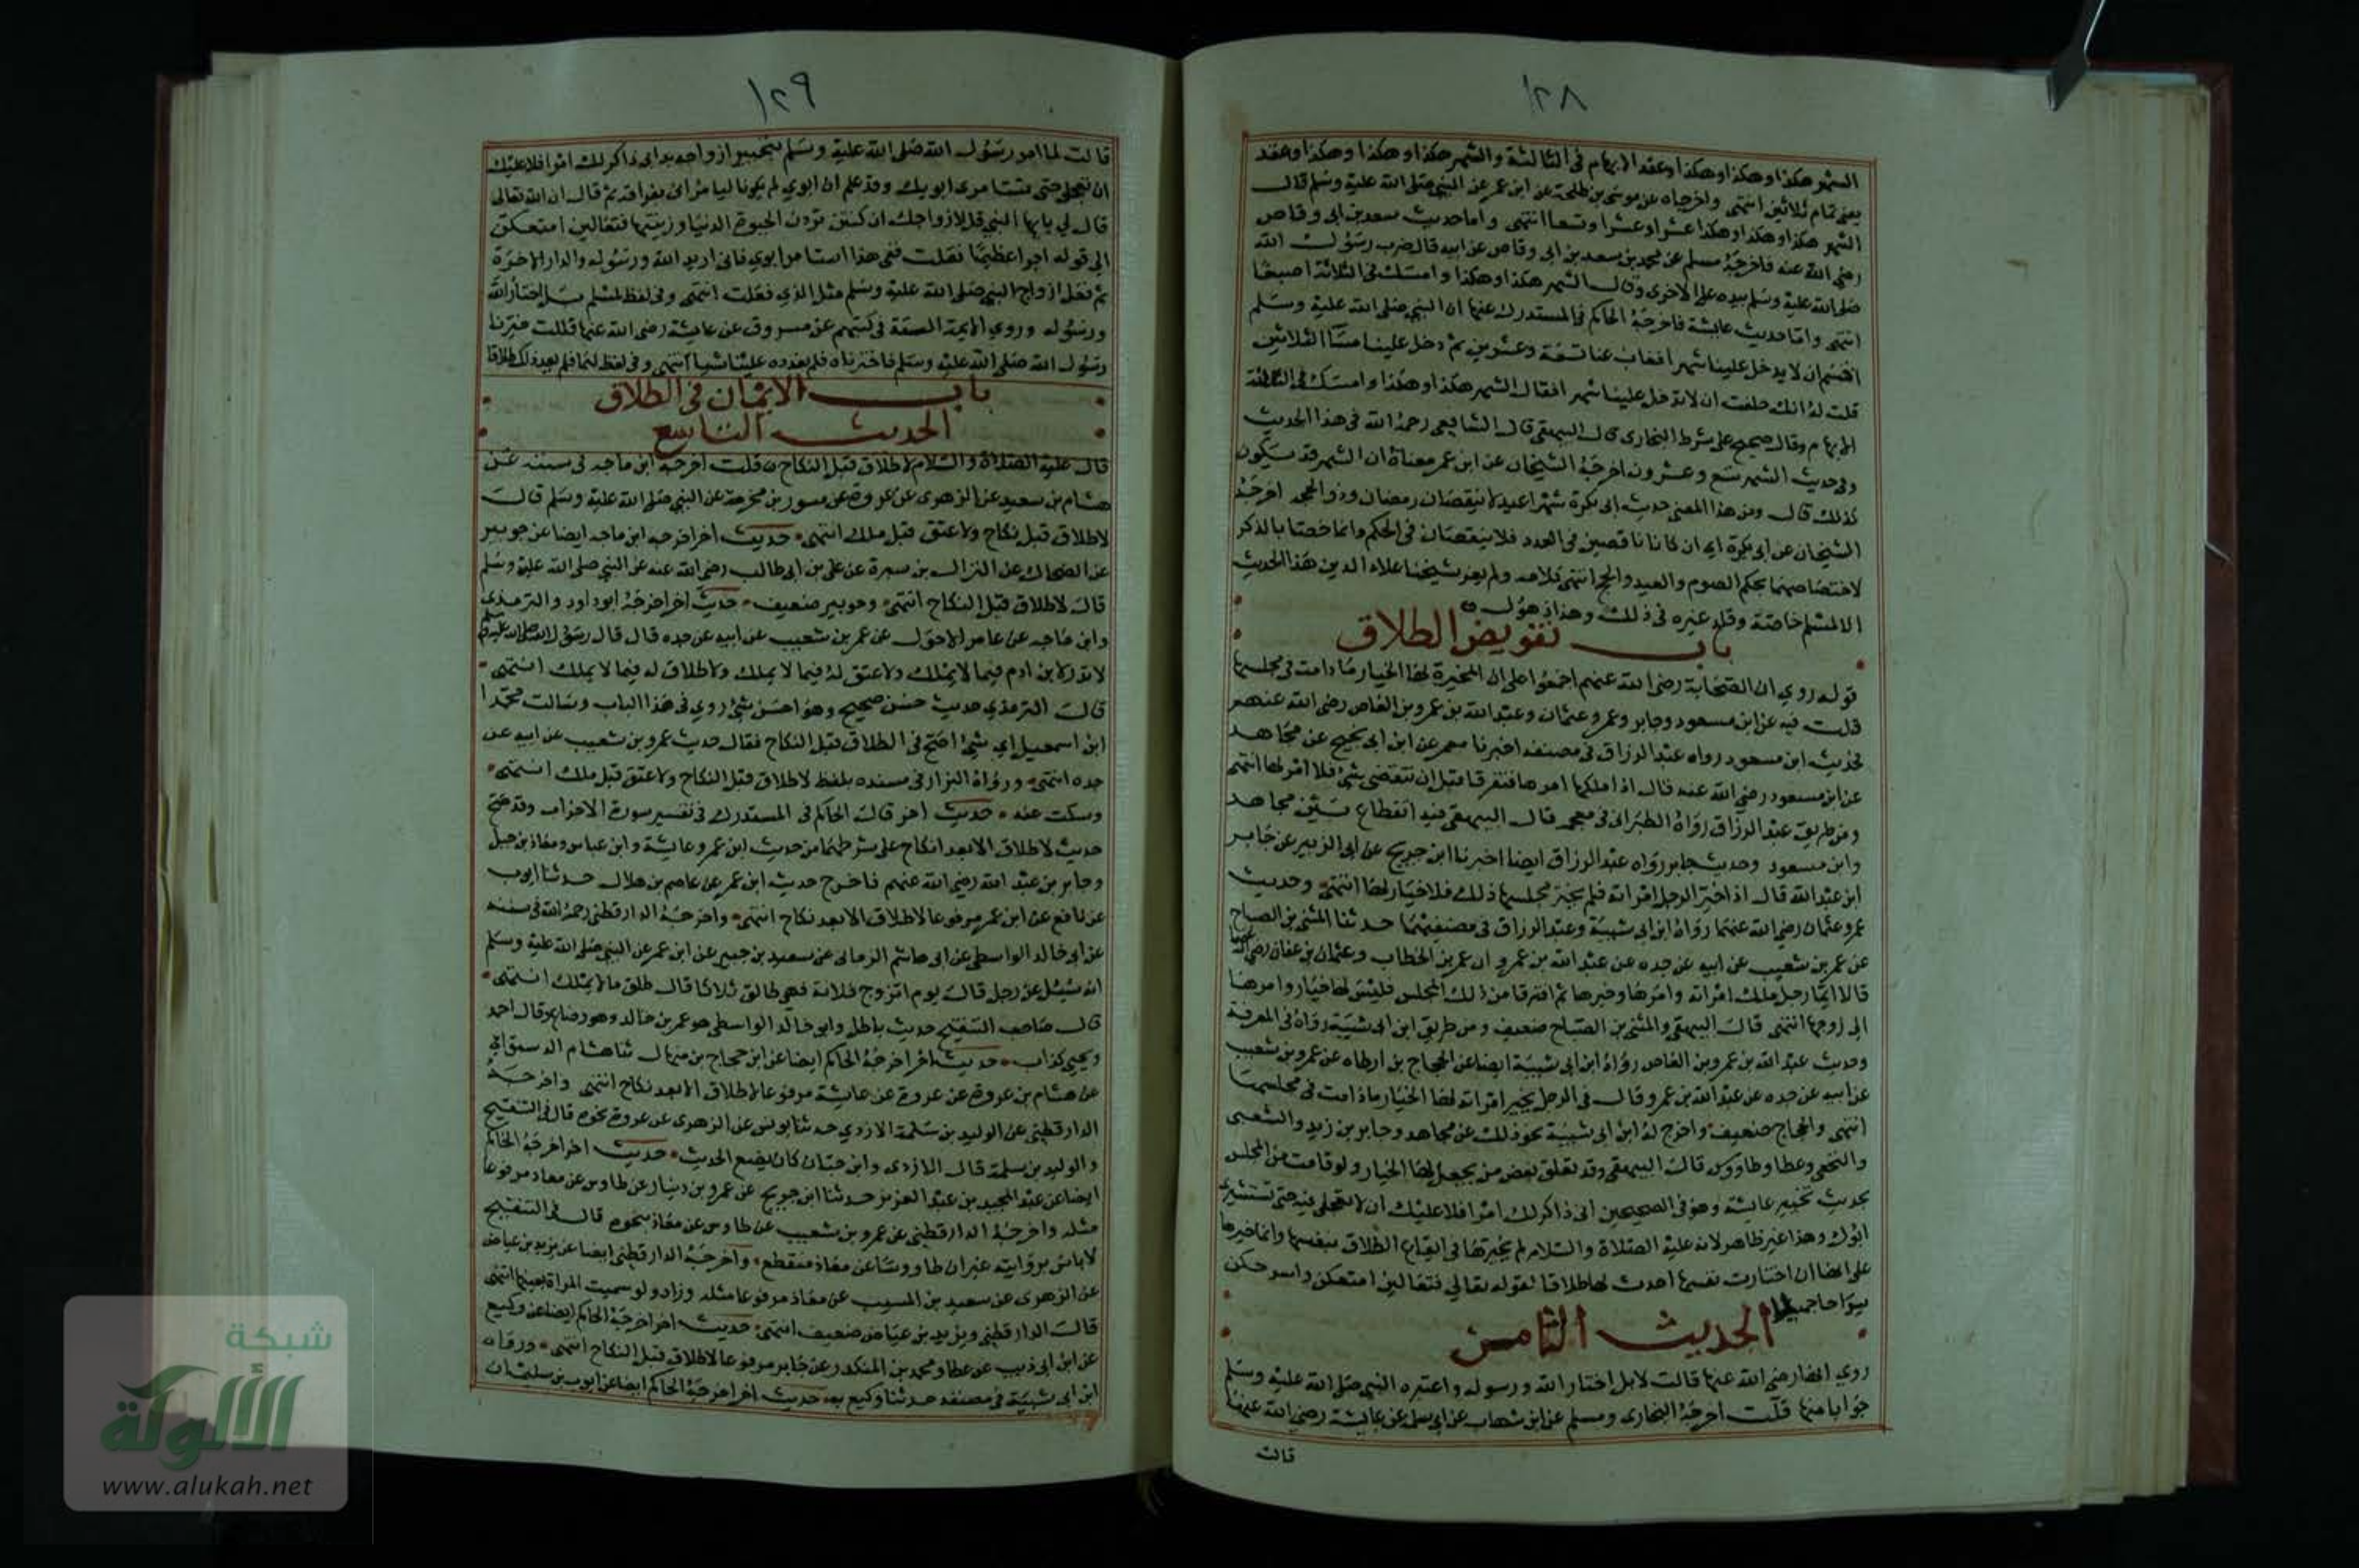 ١٢٨
الشهر هكذا وهكذا وهكذا وعقد الابهام في الثالثة والشهر هكذا وهكذا وهكذا وعقد
يعني تمام ثلاثين انتهى واخرجاه عن موسى بن طلحة عن ابن عمر عن النبي صلى الله عليه وسلم قال
الشهر هكذا وهكذا وهكذا عشرا وعشرا وتسعا انتهى واما حديث سعد بن ابي وقاص
رضي الله عنه فاخرجه مسلم عن محمد بن سعد بن ابي وقاص عن ابيه قال ضرب رسول الله
صلى الله عليه وسلم بيده على الاخرى وقال الشهر هكذا وهكذا وامسك في الثلاثة اصبعا
انتهى واما حديث عايشة فاخرجه الحاكم في المستدرك عنها ان النبي صلى الله عليه وسلم
اقسم ان لا يدخل علينا شهرا فغاب عنا تسعة وعشرين ثم دخل علينا مسا الثلاثين
قلت له انك حلفت ان لا تدخل علينا شهرا فقال الشهر هكذا وهكذا وامسك في الثالثة
الابهام وقال صحيح على شرط البخاري قال البيهقي قال الشافعي رحمه الله في هذا الحديث
وفي حديث الشهر تسع وعشرون اخرجه الشيخان عن ابن عمر معناه ان الشهر قد يكون
كذلك قال ومن هذا المعنى حديث ابي بكرة شهرا عيد لا ينقصان رمضان وذو الحجه اخرجه
الشيخان عن ابي بكرة اي ان كانا ناقصين في العدد فلا ينقصان في الحكم وانما خصا بالذكر
لاختصاصهما بحكم الصوم والعيد والحج انتهى كلامه ولم يعز شيخنا علاء الدين هذا الحديث
الا لمسلم خاصة وقلد غيره في ذلك وهذا ذهول
باب تفويض الطلاق
قوله روي ان الصحابة رضي الله عنهم اجمعوا على ان المخيرة لها الخيار ما دامت في مجلسها
قلت فيه عن ابن مسعود وجابر وعمر وعثمان وعبد الله بن عمرو بن العاص رضي الله عنهم
فحديث ابن مسعود رواه عبد الرزاق في مصنفه اخبرنا معمر عن ابن ابي نجيح عن مجاهد
عن ابن مسعود رضي الله عنه قال اذا ملكها امرها فتفرقا قبل ان تقضي بشئ فلا امر لها انتهى
ومن طريق عبد الرزاق رواه الطبراني في معجمه قال البيهقي فيه انقطاع بين مجاهد
وابن مسعود وحديث جابر رواه عبد الرزاق ايضا اخبرنا ابن جريج عن ابي الزبير عن جابر
ابن عبد الله قال اذا خير الرجل امراته فلم تختر في مجلسها ذلك فلا خيار لها انتهى وحديث
عمر وعثمان رضي الله عنهما رواه ابن ابي شيبة وعبد الرزاق في مصنفيهما حدثنا المثنى بن الصباح
عن عمر بن شعيب عن ابيه عن جده عن عبد الله بن عمرو ان عمر بن الخطاب وعثمان بن عفان رضي الله عنهما
قالا ايما رجل ملك امراته وامرها وخيرها ثم افترقا من ذلك المجلس فليس لها خيار وامرها
الى زوجها انتهى قال البيهقي والمثنى بن الصباح ضعيف ومن طريق ابن ابي شيبة رواه في المعرفة
وحديث عبد الله بن عمرو بن العاص رواه ابن ابي شيبة ايضا عن الحجاج بن ارطاه عن عمرو بن شعيب
عن ابيه عن جده عن عبد الله بن عمرو قال في الرجل يخير امراته لها الخيار ما دامت في مجلسها
انتهى والحجاج ضعيف واخرج له ابن ابي شيبة نحو ذلك عن مجاهد وجابر بن زيد والشعبى
والنخعي وعطا وطاووس قال البيهقي وقد تعلق بعض من يجعل لها الخيار ولو قامت من المجلس
بحديث تخيير عايشة وهو في الصحيحين اني ذاكر لك امرا فلا عليك ان لا تعجلي فيه حتى تستشيري
ابوك وهذا غير ظاهر لانه عليه الصلاة والسلام لم يخيرها في ايقاع الطلاق بنفسها وانما خيرها
على انها ان اختارت نفسها احدث لها طلاقا لقوله تعالي فتعالين امتعكن واسرحكن
سراحا جميلا
الحديث الثامن
روي انها رضي الله عنها قالت لا بل اختار الله ورسوله واعتبره النبي صلى الله عليه وسلم
جوابا منها قلت اخرجه البخاري ومسلم عن ابن شهاب عن ابي سلمة عن عايشة رضي الله عنها
قالت
١٢٩
قالت لما امر رسول الله صلى الله عليه وسلم بتخيير ازواجه بدا بي ذاكر لك امرا فلا عليك
ان تعجلي حتى تستامري ابويك وقد علم ان ابوي لم يكونا ليامراني بفراقه ثم قال ان الله تعالى
قال لي يا ايها النبي قل لازواجك ان كنتن تردن الحيوة الدنيا وزينتها فتعالين امتعكن
الى قوله اجرا عظيما فقلت ففي هذا استامر ابوي فاني اريد الله ورسوله والدار الاخرة
ثم فعل ازواج النبي صلى الله عليه وسلم مثل الذي فعلت انتهى وفي لفظ لمسلم بل اختار الله
ورسوله وروي الايمة الستة في كتبهم عن مسروق عن عايشة رضي الله عنها قالت خيرنا
رسول الله صلى الله عليه وسلم فاخترناه فلم يعدده علينا شيا انتهى وفي لفظ لهما فلم يعد ذلك طلاقا
باب الايمان في الطلاق
الحديث التاسع
قال عليه الصلاة والسلام لا طلاق قبل النكاح قلت اخرجه ابن ماجه في سننه عن
هشام بن سعيد عن الزهري عن عروة عن مسور بن مخرمة عن النبي صلى الله عليه وسلم قال
لا طلاق قبل نكاح ولا عتق قبل ملك انتهى حديث اخر اخرجه ابن ماجه ايضا عن جويبر
عن الضحاك عن النزال بن سبرة عن علي بن ابي طالب رضي الله عنه عن النبي صلى الله عليه وسلم
قال لا طلاق قبل النكاح انتهى وجويبر ضعيف حديث اخر اخرجه ابو داود والترمذي
وابن ماجه عن عامر الاحول عن عمر بن شعيب عن ابيه عن جده قال قال رسول الله صلى الله عليه وسلم
لا نذر لابن ادم فيما لا يملك ولا عتق له فيما لا يملك ولا طلاق له فيما لا يملك انتهى
قال الترمذي حديث حسن صحيح وهو احسن شئ روي في هذا الباب وسالت محمدا
ابن اسمعيل اي شئ اصح في الطلاق قبل النكاح فقال حديث عمرو بن شعيب عن ابيه عن
جده انتهى ورواه البزار في مسنده بلفظ لا طلاق قبل النكاح ولا عتق قبل ملك انتهى
وسكت عنه حديث اخر قال الحاكم في المستدرك في تفسير سورة الاحزاب وقد صح
حديث لا طلاق الا بعد نكاح على شرطهما من حديث ابن عمر وعايشة وابن عباس ومعاذ بن جبل
وجابر بن عبد الله رضي الله عنهم فاخرج حديث ابن عمر عن عاصم بن هلال حدثنا ايوب
عن نافع عن ابن عمر مرفوعا لا طلاق الا بعد نكاح انتهى واخرجه الدارقطني رحمه الله في سننه
عن ابي خالد الواسطي عن ابي هاشم الرماني عن سعيد بن جبير عن ابن عمر عن النبي صلى الله عليه وسلم
انه سئل عن رجل قال يوم اتزوج فلانة فهي طالق ثلاثا قال طلق ما لا يملك انتهى
قال صاحب التنقيح حديث باطل وابو خالد الواسطي هو عمر بن خالد وهو وضاع وقال احمد
ويحيى كذاب حديث اخر اخرجه الحاكم ايضا عن ابن حجاج بن منهال ثنا هشام الدستوائي
عن هشام بن عروة عن عروة عن عايشة مرفوعا لا طلاق الا بعد نكاح انتهى واخرجه
الدارقطني عن الوليد بن سلمة الازدي حدثنا يونس عن الزهري عن عروة نحوه قال في التنقيح
والوليد بن سلمة قال الازدي وابن حبان كان يضع الحديث حديث اخر اخرجه الحاكم
ايضا عن عبد المجيد بن عبد العزيز حدثنا ابن جريج عن عمرو بن دينار عن طاوس عن معاذ مرفوعا
مثله واخرجه الدارقطني عن عمرو بن شعيب عن طاوس عن معاذ بنحوه قال في التنقيح
لا باس برواته غير ان طاووسا عن معاذ منقطع واخرجه الدارقطني ايضا عن يزيد بن عياض
عن الزهري عن سعيد بن المسيب عن معاذ مرفوعا مثله وزاد ولو سميت المراة بعينها انتهى
قال الدارقطني ويزيد بن عياض ضعيف انتهى حديث اخر اخرجه الحاكم ايضا عن وكيع
عن ابن ابي ذيب عن عطا ومحمد بن المنكدر عن جابر مرفوعا لا طلاق قبل النكاح انتهى ورواه
ابن ابي شيبة في مصنفه حدثنا وكيع به حديث اخر اخرجه الحاكم ايضا عن ايوب بن سليمان
شبكة
الألوكة
www.alukah.net